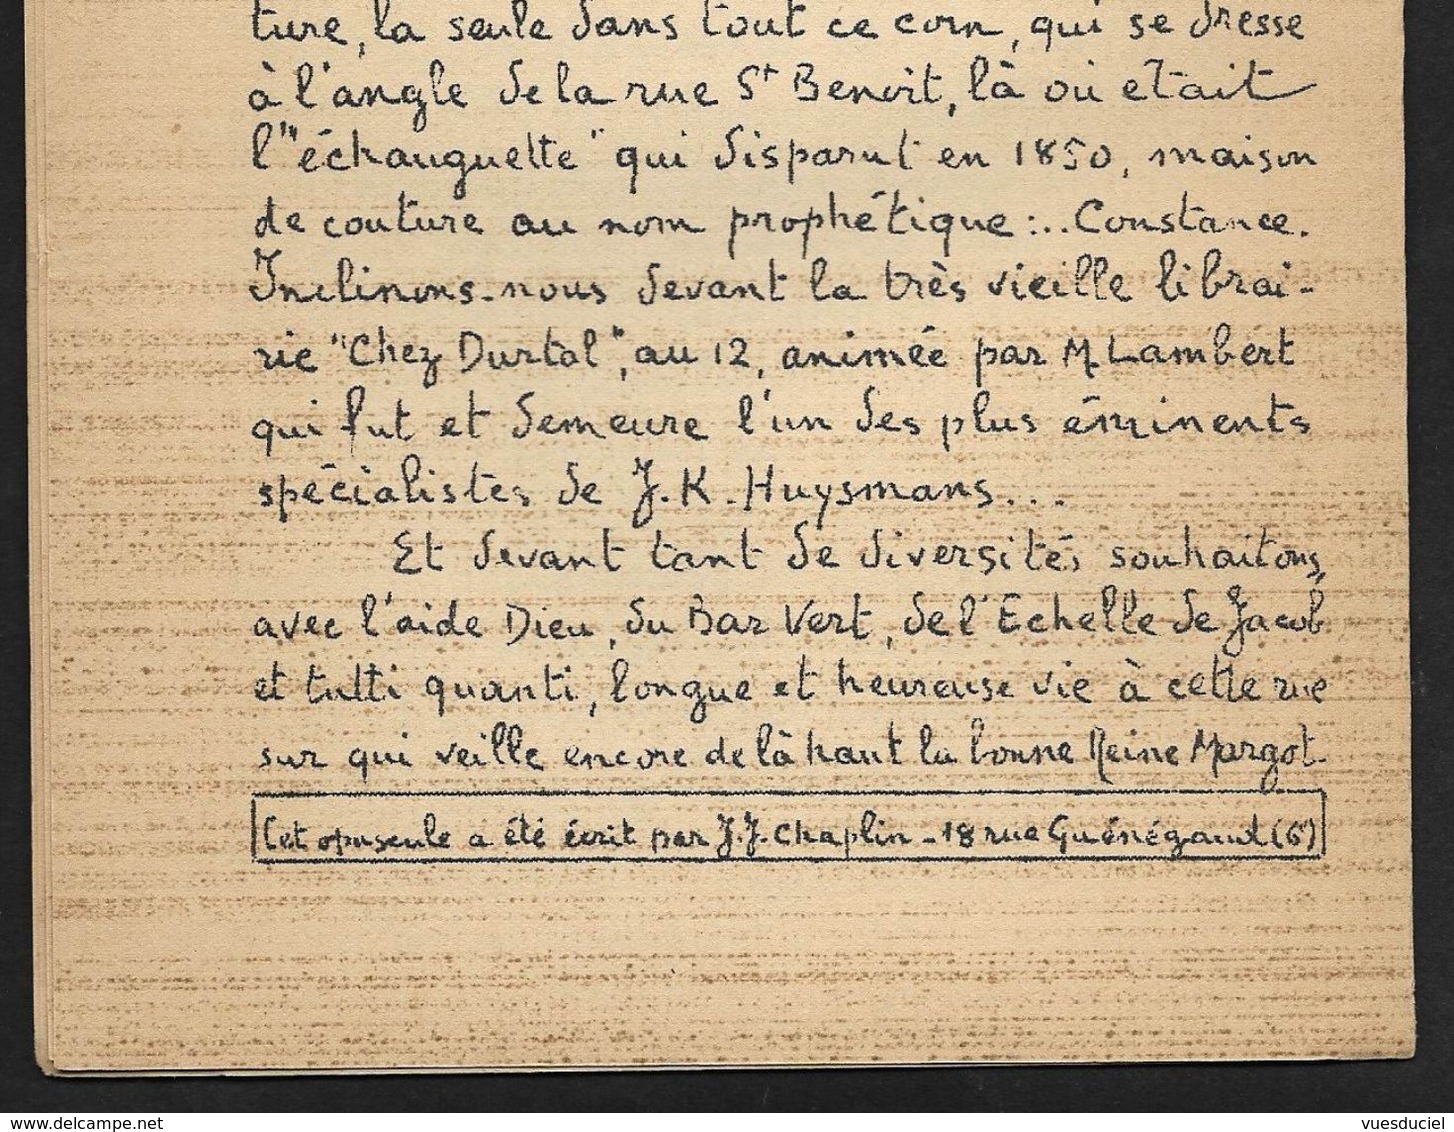 ture, la seule dans tout ce coin, qui se dresse
à l'angle de la rue St Benoit, là où etait
l'"échauguette" qui disparut en 1850, maison
de couture au nom prophétique :... Constance.
Inclinons-nous devant la très vieille librai-
rie "Chez Durtal", au 12, animée par M Lambert
qui fut et demeure l'un des plus éminents
spécialistes de J.K. Huysmans...
Et devant tant de diversités souhaitons,
avec l'aide Dieu, du Bar Vert, de l'Echelle de Jacob
et tutti quanti, longue et heureuse vie à cette rue
sur qui veille encore de là haut la bonne Reine Margot
Cet opuscule a été écrit par J.J. Chaplin - 18 rue Guénégaud (6e)
© delcampe.net
vuesduciel